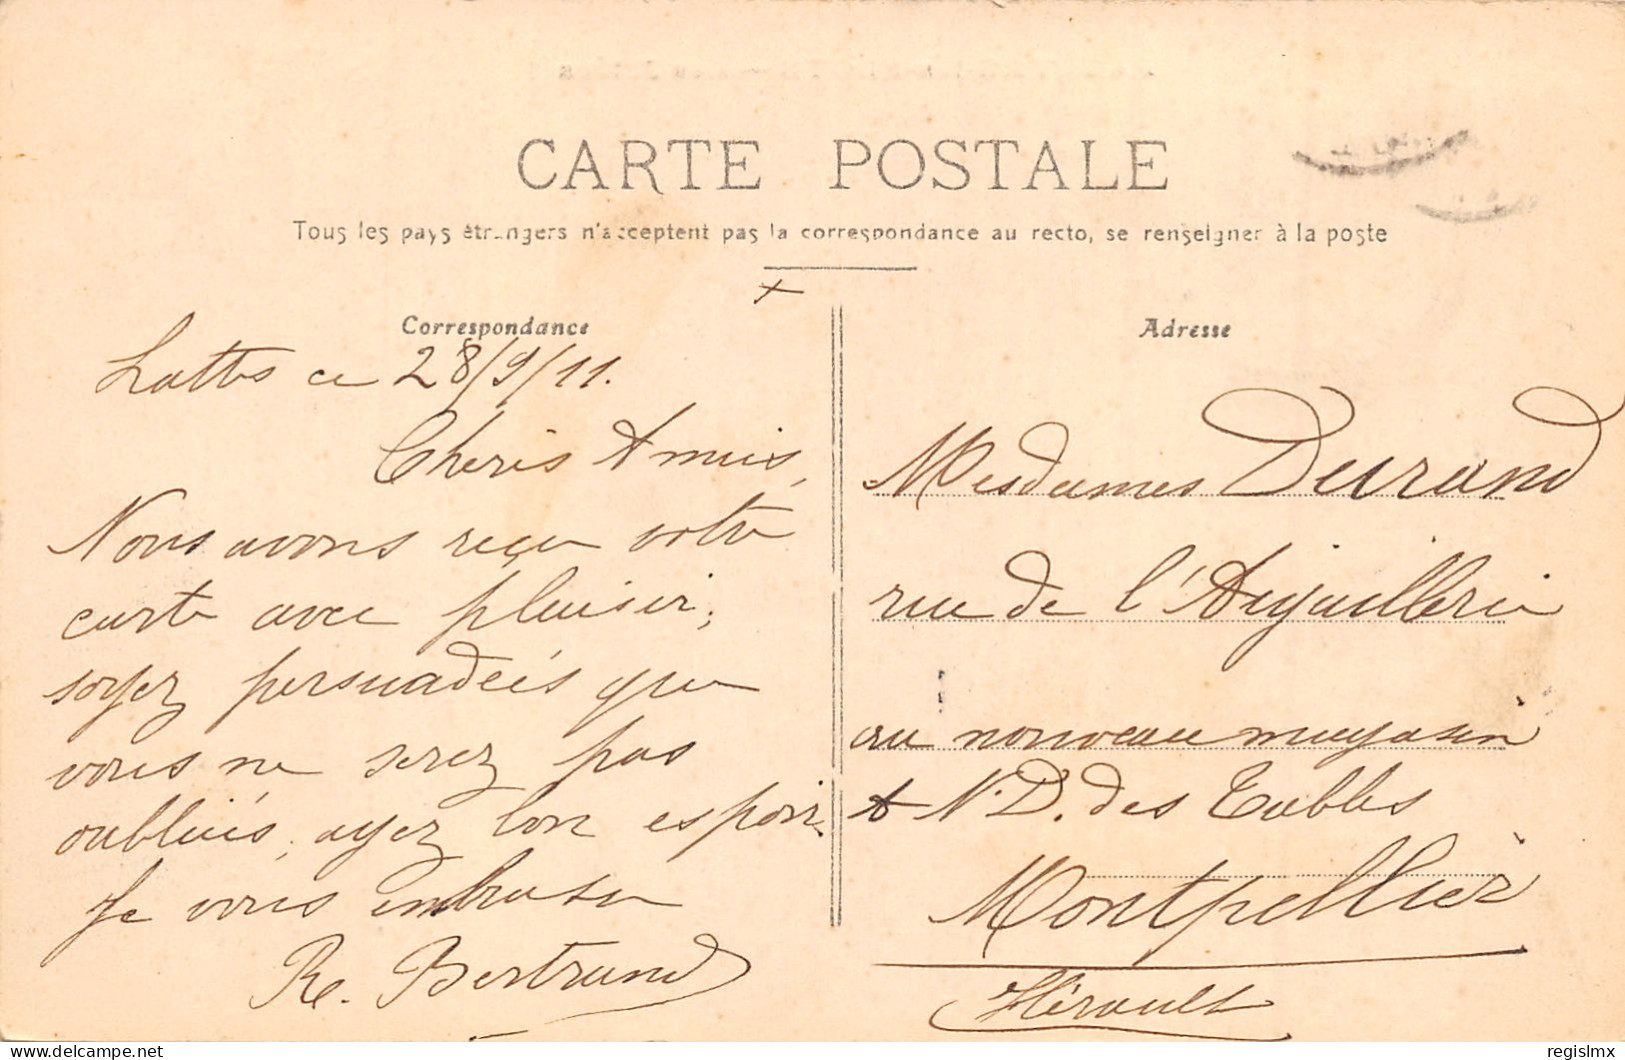 CARTE POSTALE
Tous les pays étrangers n'acceptent pas la correspondance au recto, se renseigner à la poste
Correspondance
Lattes ce 28/9/11.
Cheris Amis,
Nous avons reçu votre
carte avec plaisir;
soyez persuadéés que
vous ne serez pas
oubliiés, ayez bon espoir.
Je vous embrasse
Re. Bertrand
Adresse
Mesdames Durand
rue de l'Aiguillerie
au nouveau magasin
N.D. des Tables
Montpellier
Hérault
regislmx